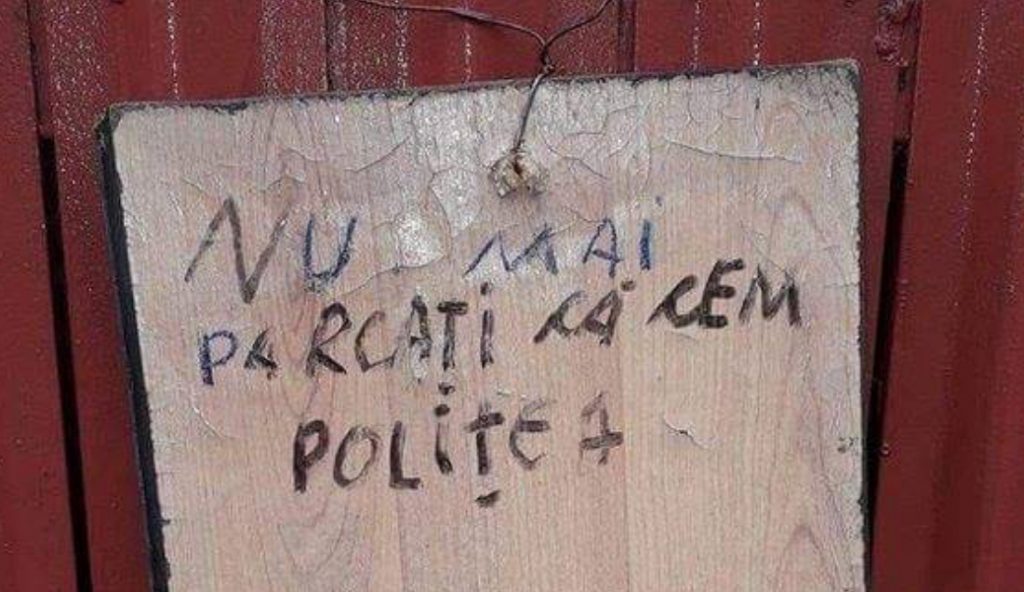 NU MAi
PARCAȚi CĂ CEM
POLiȚEA